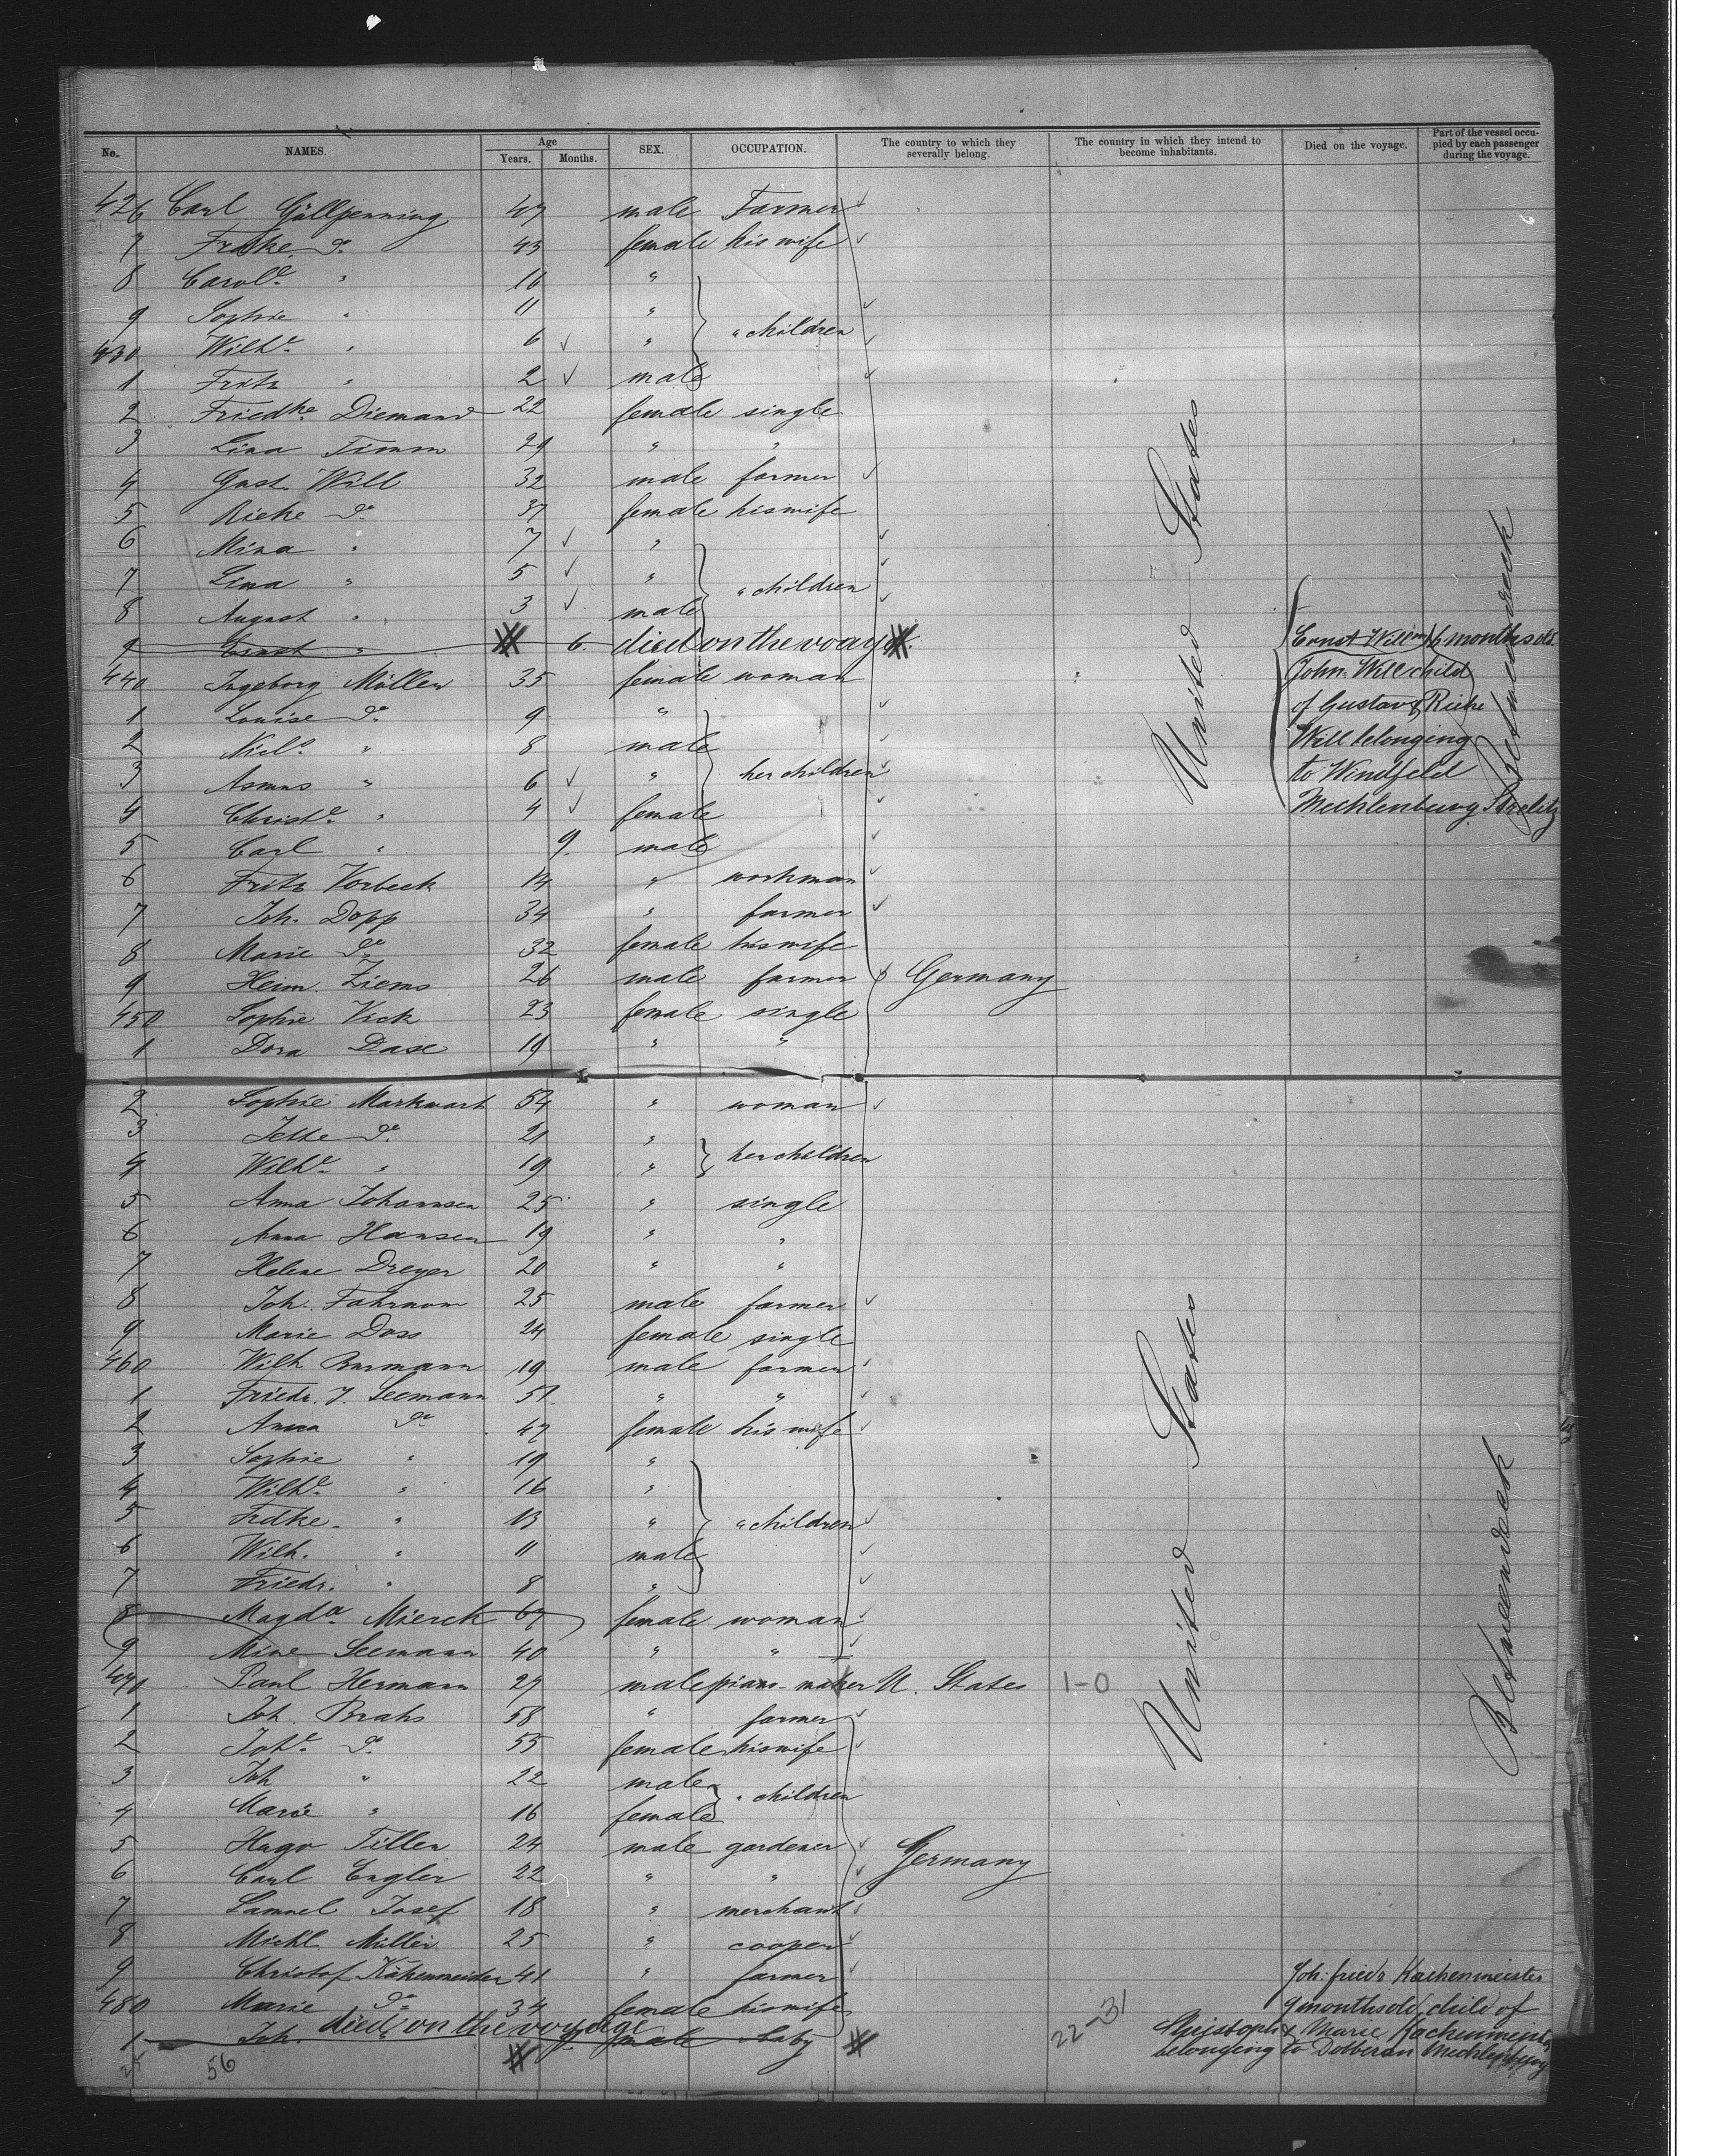 No. NAMES. Age Years. Months. SEX. OCCUPATION. The country to which they severally belong. The country in which they intend to become inhabitants. Died on the voyage. Part of the vessel occupied by each passenger during the voyage.
426 Carl Göllpenning 47 male Farmer
7 Frdke. do 43 female his wife
8 Carole " 16 "
9 Sophie " 11 "
430 Wilhe " 6 " " children
1 Fritz " 2 male
2 Friedke Diemand 22 female single
3 Lina Timm 29 " "
4 Gust. Will 32 male farmer
5 Rieke do 37 female his wife
6 Mina " 7 "
7 Lina " 5 " " children
8 August " 3 male
9 Ernst " 6. died on the voayge.
440 Ingeborg Möller 35 female woman
1 Louise do 9 "
2 Niels " 8 male
3 Asmus " 6 " her children
4 Christe " 4 female
5 Carl " 9. male
6 Fritz Vorbeck 14 " workman
7 Joh. Dopp 34 " farmer
8 Marie do 32 female his wife
9 Heinr. Ziems 26 male farmer Germany
450 Sophie Vick 23 female single
1 Dora Dase 19 " "
2 Sophie Markwart 54 " woman
3 Jette do 21 "
4 Wilhe " 19 " her children
5 Anna Johannsen 25 " single
6 Anna Hansen 19 " "
7 Helene Dreyer 20 " "
8 Joh. Fahrnow 25 male farmer
9 Marie Doss 24 female single
460 Wilh Burmann 19 male farmer
1 Friedr. J. Seemann 51. " "
2 Anna do 47 female his wife
3 Sophie " 19 "
4 Wilhe " 16 "
5 Frdke. " 13 " " children
6 Wilh. " 11 male
7 Friedr. " 8 "
8 Magda Mierck 67 female woman
9 Mine Seemann 40 " "
470 Paul Hermann 27 male piano-maker U. States 1-0
1 Joh. Brahs 58 " farmer
2 Johe do 55 female his wife
3 Joh " 22 male " children
4 Marie " 16 female
5 Hugo Tiller 24 male gardener Germany
6 Carl Engler 22 " "
7 Samuel Josef 18 " merchant
8 Michl. Müller 25 " cooper
9 Christof Käkenmeister 41 " farmer
480 Marie do 34 female his wife
1 Joh. died on the voyage male baby
56
22-31
United States
United States
Ernst Will 6 months old
John Will child
of Gustav & Rieke
Will belonging
to Windfeld
Mecklenburg Strelitz
Betweendeck
Betweendeck
Joh: friedr Kachenmeister
9 months old child of
Christoph & Marie Kachenmeister
belonging to Dobberan Mecklenburg